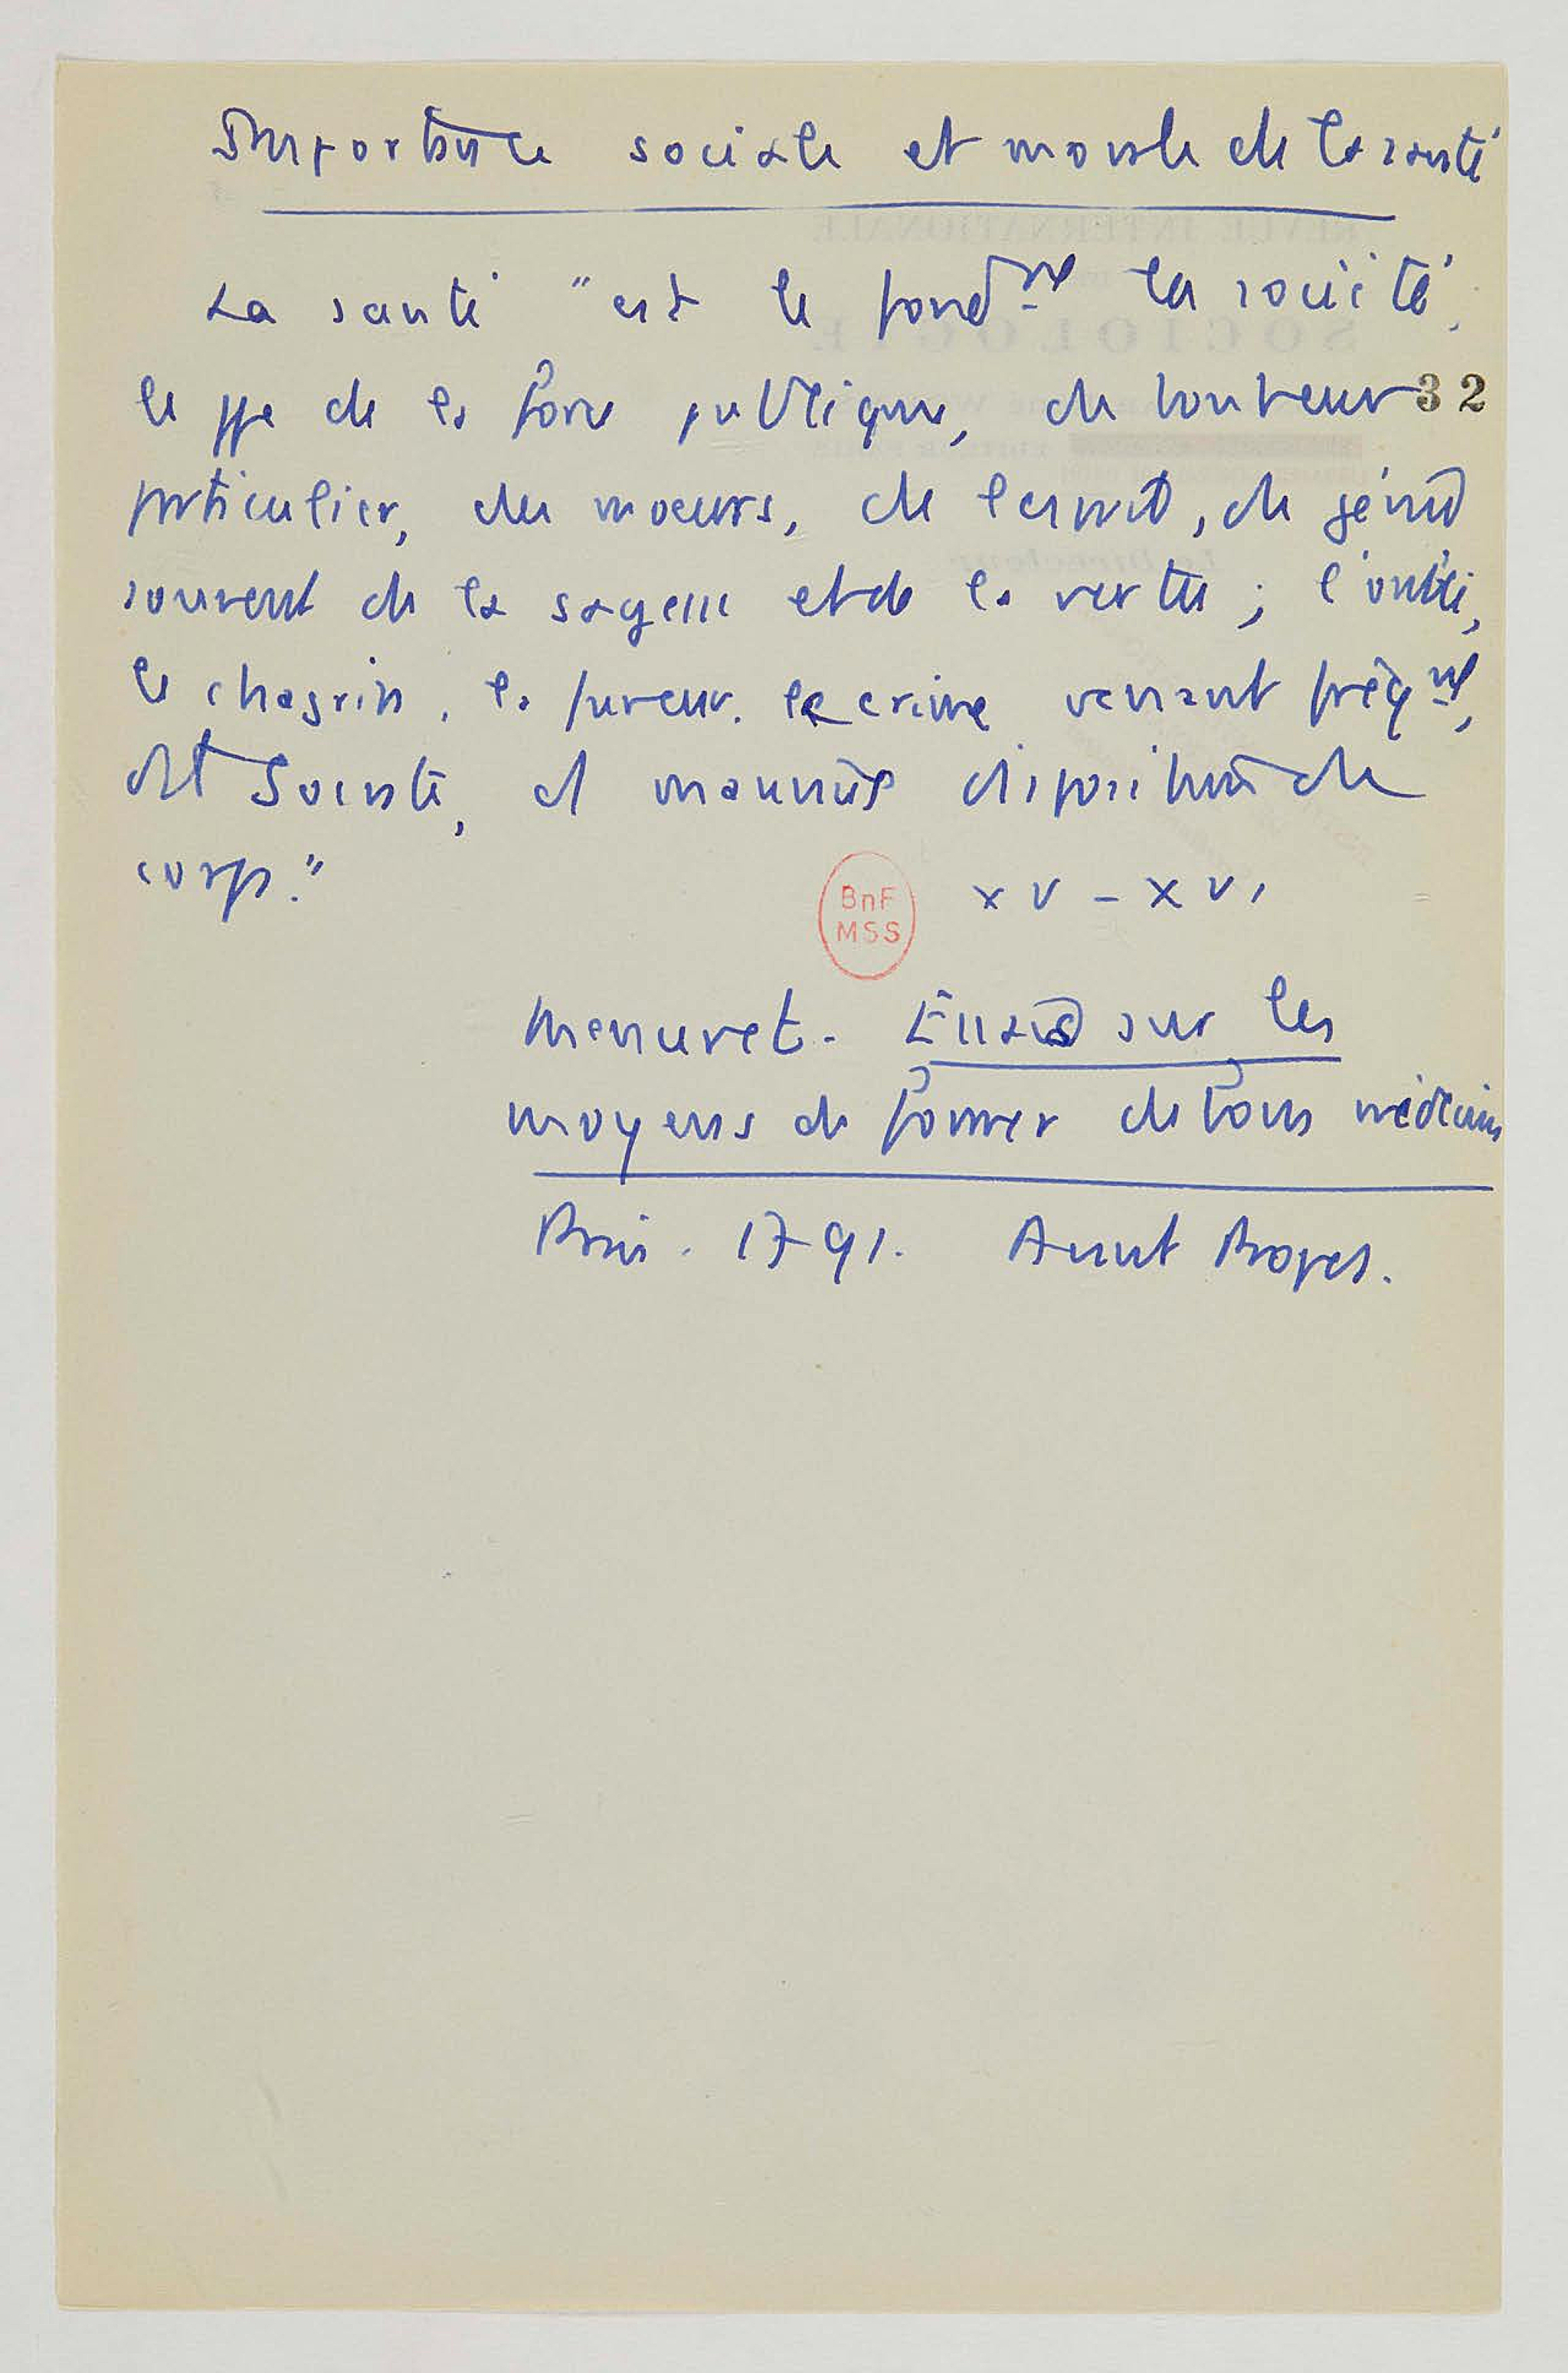 Importance sociale et morale de la santé
La santé "est le fond^mt de la société,
le ppe de la force publique, du bonheur 32
particulier, des moeurs, de l'esprit, du génie
souvent de la sagesse et de la vertu ;
le chagrin, la fureur, le crime venant fréq^mt,
de mauvaise disposition du
corps."
BnF
MSS
XV - XVI
Menuret. Essais sur les
moyens de former de bons médecins
Paris. 1791. Avant Propos.